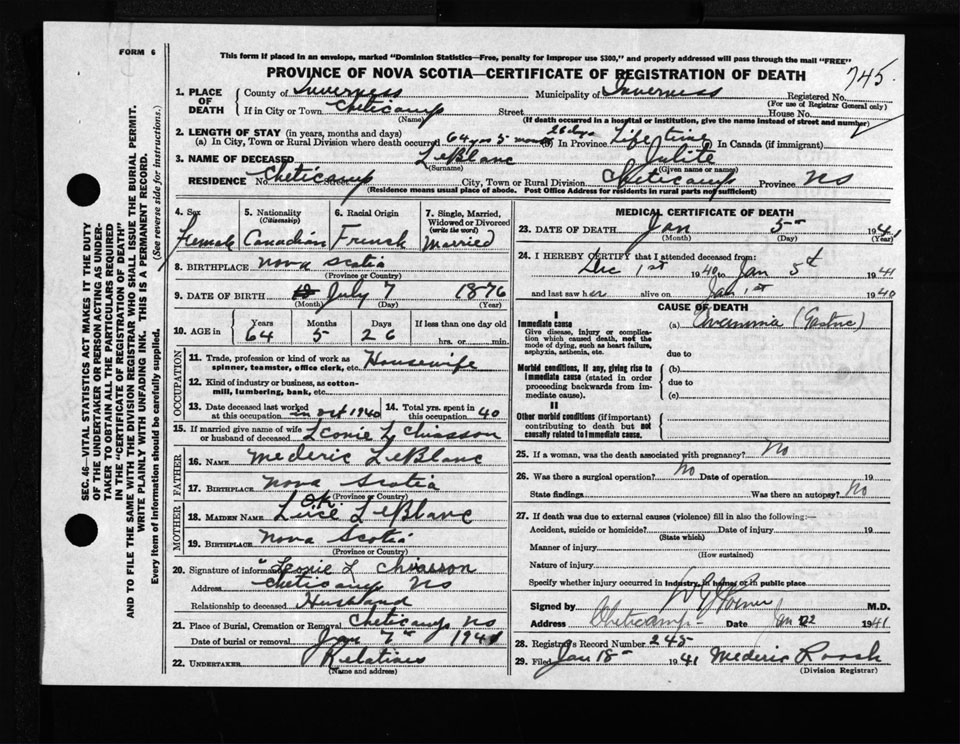 FORM 6
This form if placed in an envelope, marked "Dominion Statistics—Free, penalty for improper use $300," and properly addressed will pass through the mail "FREE"
PROVINCE OF NOVA SCOTIA—CERTIFICATE OF REGISTRATION OF DEATH
745
1. PLACE OF DEATH
County of Inverness Municipality of Inverness Registered No.
(For use of Registrar General only)
If in City or Town Cheticamp Street House No.
(Name) (If death occurred in a hospital or institution, give the name instead of street and number)
2. LENGTH OF STAY (in years, months and days)
(a) In City, Town or Rural Division where death occurred 64 yrs 5 months 26 days (b) In Province Life time (c) In Canada (if immigrant)
3. NAME OF DECEASED LeBlanc Julite
(Surname) (Given name or names)
RESIDENCE No. Cheticamp Street City, Town or Rural Division Cheticamp Province NS
(Residence means usual place of abode. Post Office Address for residents in rural parts not sufficient)
4. Sex Female
5. Nationality (Citizenship) Canadian
6. Racial Origin French
7. Single, Married, Widowed or Divorced (write the word) Married
8. BIRTHPLACE Nova Scotia
(Province or Country)
9. DATE OF BIRTH July 7 1876
(Month) (Day) (Year)
10. AGE in Years Months Days If less than one day old
64 5 26 hrs. or min.
OCCUPATION
11. Trade, profession or kind of work as spinner, teamster, office clerk, etc. Housewife
12. Kind of industry or business, as cotton-mill, lumbering, bank, etc.
13. Date deceased last worked at this occupation in Oct 1940
14. Total yrs. spent in this occupation 40
15. If married give name of wife or husband of deceased Leonie L Chiasson
FATHER
16. Name Mederic LeBlanc
17. Birthplace Nova Scotia
(Province or Country)
MOTHER
O.K.
18. Maiden Name Luce LeBlanc
19. Birthplace Nova Scotia
(Province or Country)
20. Signature of informant Leonie L Chiasson
Address Cheticamp NS
Relationship to deceased Husband
21. Place of Burial, Cremation or Removal Cheticamp NS
Date of burial or removal Jan 7 1941
22. Undertaker Relatives
(Name and address)
MEDICAL CERTIFICATE OF DEATH
23. DATE OF DEATH Jan 5 1941
(Month) (Day) (Year)
24. I HEREBY CERTIFY that I attended deceased from:
Dec 1st 1940 to Jan 5th 1941
and last saw her alive on Jan 1st 1940
CAUSE OF DEATH
I
Immediate cause
Give disease, injury or complication which caused death, not the mode of dying, such as heart failure, asphyxia, asthenia, etc.
(a) (Gastric)
due to
Morbid conditions, if any, giving rise to immediate cause (stated in order proceeding backwards from immediate cause).
(b)
due to
(c)
II
Other morbid conditions (if important) contributing to death but not causally related to immediate cause.
25. If a woman, was the death associated with pregnancy? No
26. Was there a surgical operation? No Date of operation 19
State findings Was there an autopsy? No
27. If death was due to external causes (violence) fill in also the following:—
Accident, suicide or homicide? Date of injury 19
(State which)
Manner of injury
(How sustained)
Nature of injury
Specify whether injury occurred in industry, in home or in public place
Signed by M.D.
Address Cheticamp Date Jan 1941
28. Registrar's Record Number 245
29. Filed Jan 18 1941 Mederic Roach
(Division Registrar)
SEC. 46—VITAL STATISTICS ACT MAKES IT THE DUTY
OF THE UNDERTAKER OR PERSON ACTING AS UNDER-
TAKER TO OBTAIN ALL THE PARTICULARS REQUIRED
IN THE "CERTIFICATE OF REGISTRATION OF DEATH"
AND TO FILE THE SAME WITH THE DIVISION REGISTRAR WHO SHALL ISSUE THE BURIAL PERMIT.
WRITE PLAINLY WITH UNFADING INK. THIS IS A PERMANENT RECORD.
Every item of information should be carefully supplied. (See reverse side for instructions.)